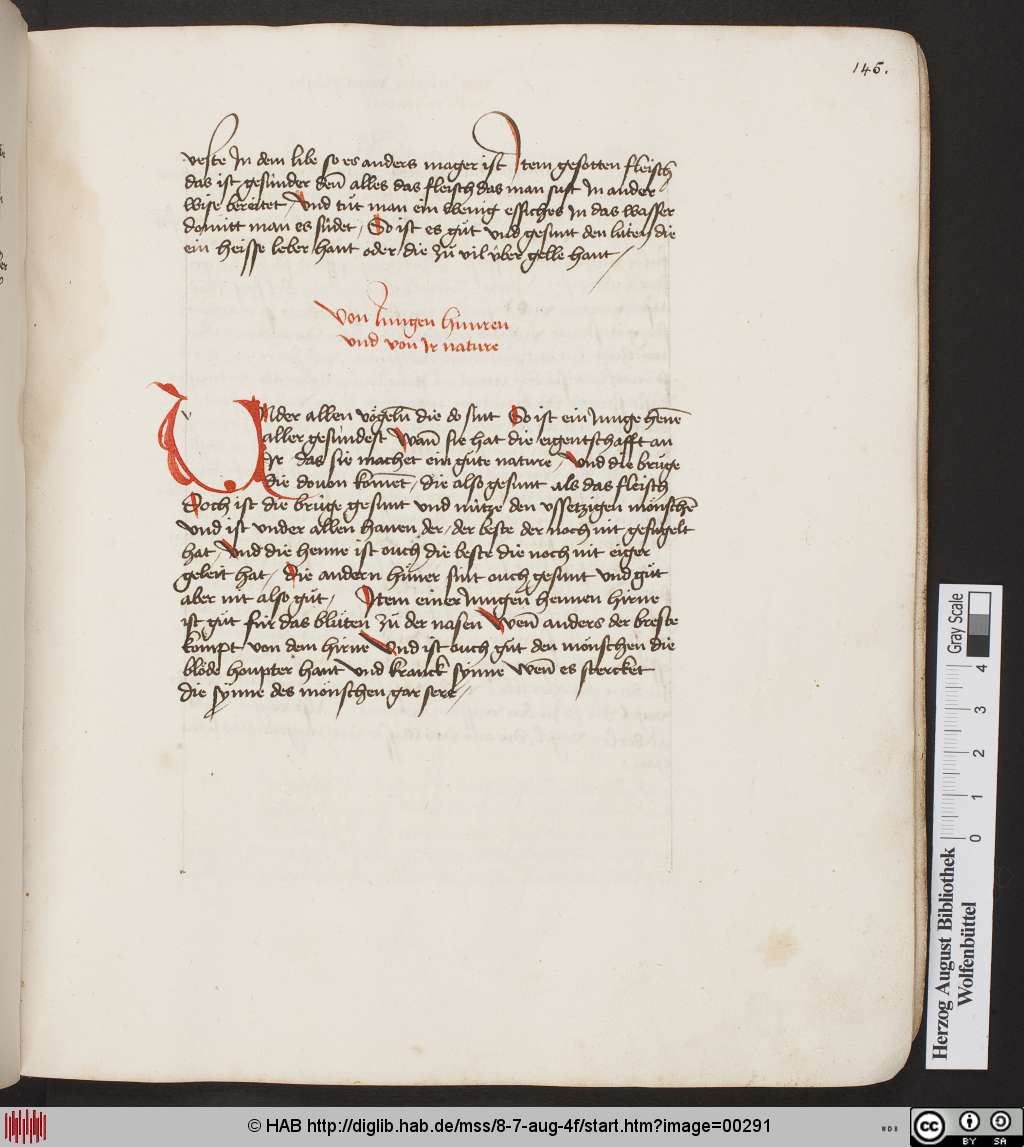 145.
veste In dem libe so es anders mager ist Item gesotten fleisch
das ist gesünder den̄ alles das fleisch das man sust In ander
wise bereitet / Vnd tůt man ein wenig essiches In das wasser
domitt man es südet / So ist es gůt vnd gesunt den lüten die
ein heisse leber hant oder die zů vil über gelle hant /
Von Jungen hünren
vnd von Ir nature
VNder allen vögeln̄ die do sint So ist ein Junge hen̄e
aller gesündest Wan̄ sie hat die eigentschafft an
Ir das sie machet ein gůte nature / Vnd die brüge
die douon kom̄et / die also gesunt als das fleisch
Doch ist die brüge gesunt vnd nütze den vssetzigen mönschē
vnd ist vnder allen hanen der / der beste der noch nit gefügelt
hat / Vnd die henne ist ouch die beste die noch nit eiger
geleit hat / die andern hüner sint ouch gesunt vnd gůt
aber nit also gůt / Item einer Jungen hennen hirne
ist gůt für das blůten zů der nasen Wen̄ anders der breste
kompt von dem hirne Vnd ist ouch gůt den mönschen die
blöde houpter hant vnd kranck synne wen̄ es stercket
die synne des mönschen gar sere /
Gray Scale
0 1 2 3 4
Herzog August Bibliothek
Wolfenbüttel
© HAB http://diglib.hab.de/mss/8-7-aug-4f/start.htm?image=00291
WDB
cc BY SA